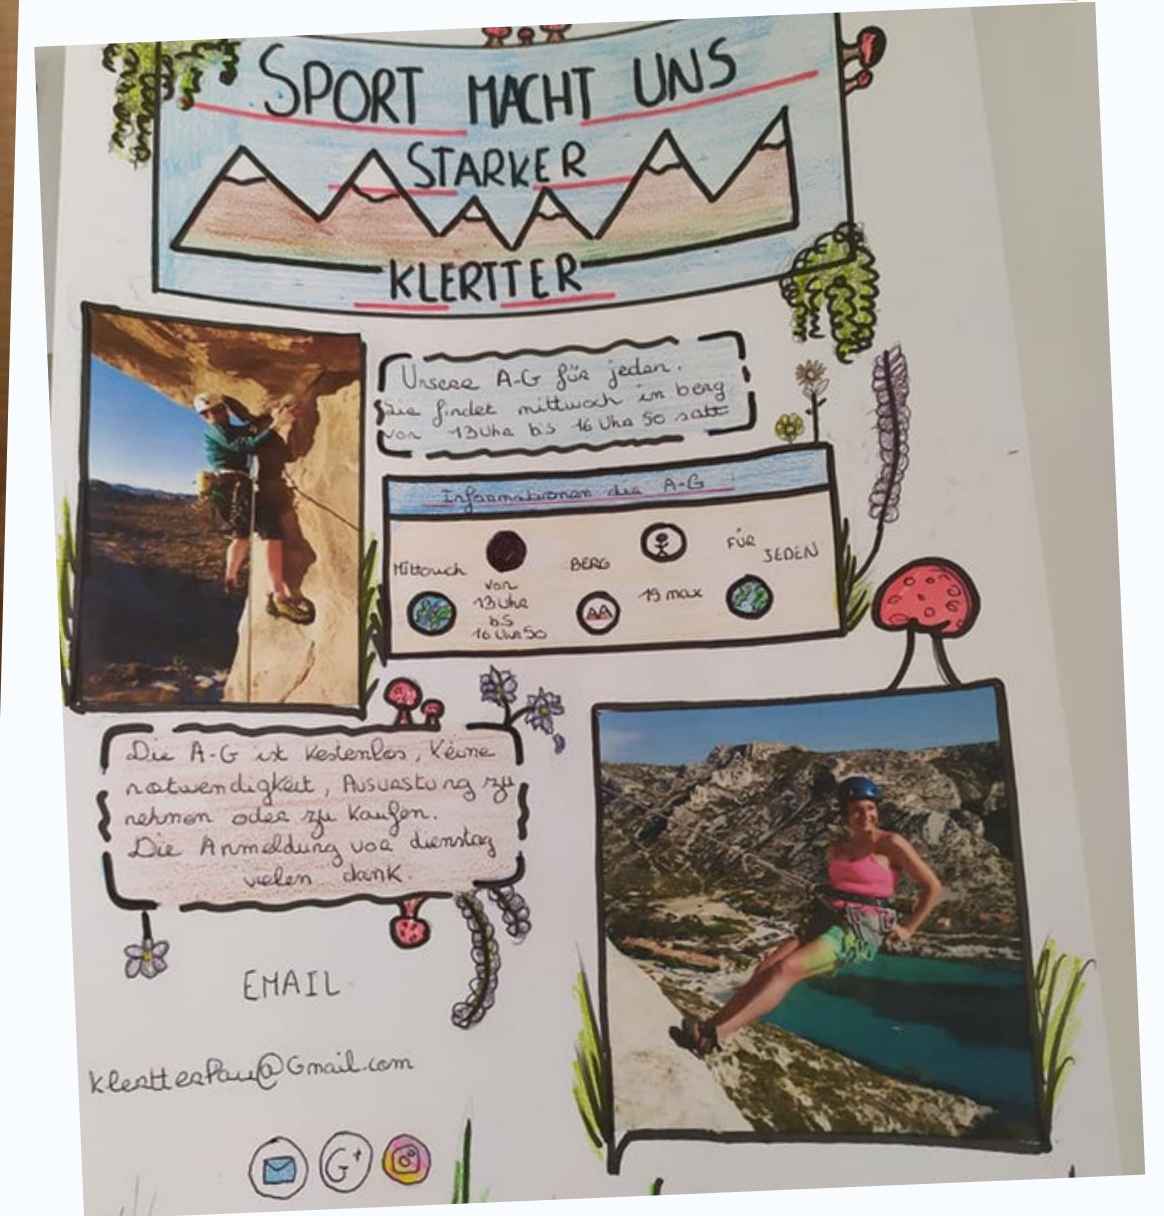 SPORT MACHT UNS
STARKER
KLERTTER
Unsere A-G für jeden.
Sie findet mittwoch im berg
von 13 Uhr bis 16 Uhr 50 satt
Informationen die A-G
Mittouch
von
13 Uhr
bis
16 Uhr 50
BERG
19 max
FÜR
JEDEN
Die A-G ist kostenlos, Keine
notwendigkeit, Ausrustung zu
nehmen oder zu kaufen.
Die Anmeldung vor dienstag
vielen dank.
EMAIL
klertterPau@Gmail.com
G+